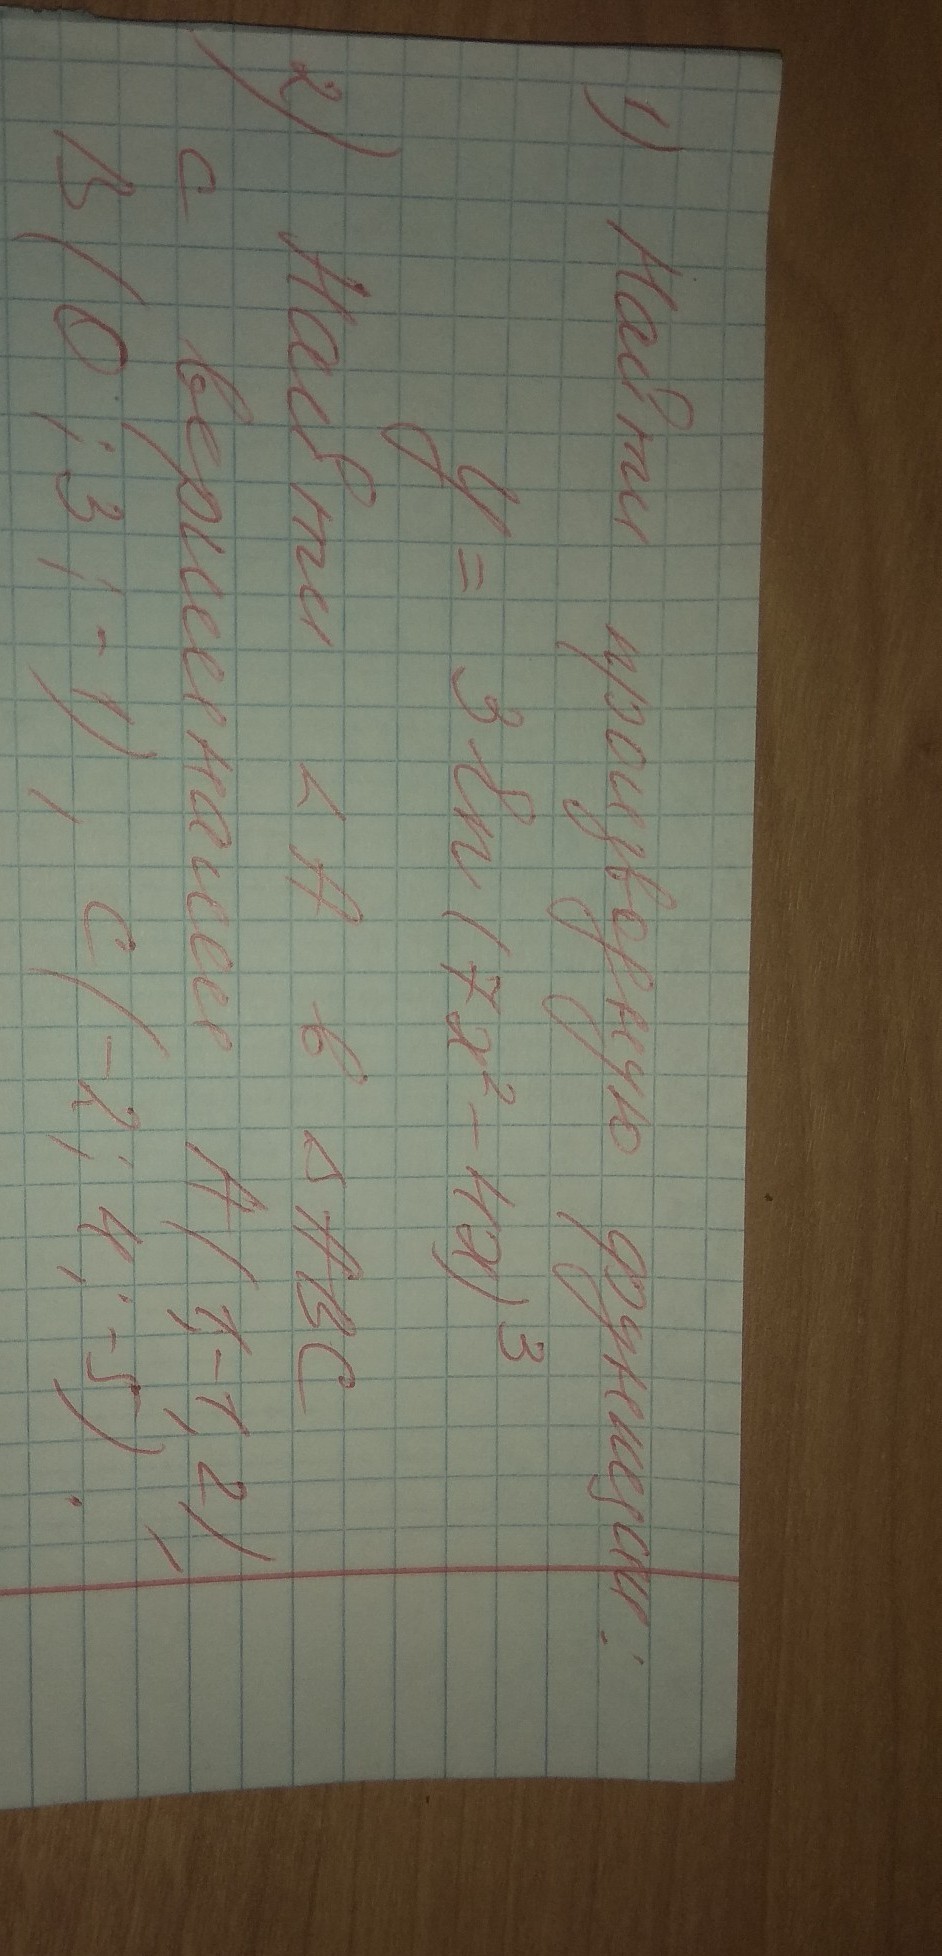 1) Найти производную функции:
y = 3 ln (7x² - 4x)³
2) Найти ∠ A в △ ABC
с вершинами A(1,-1,2),
B(0;3;-1), C(-2;4;-5).